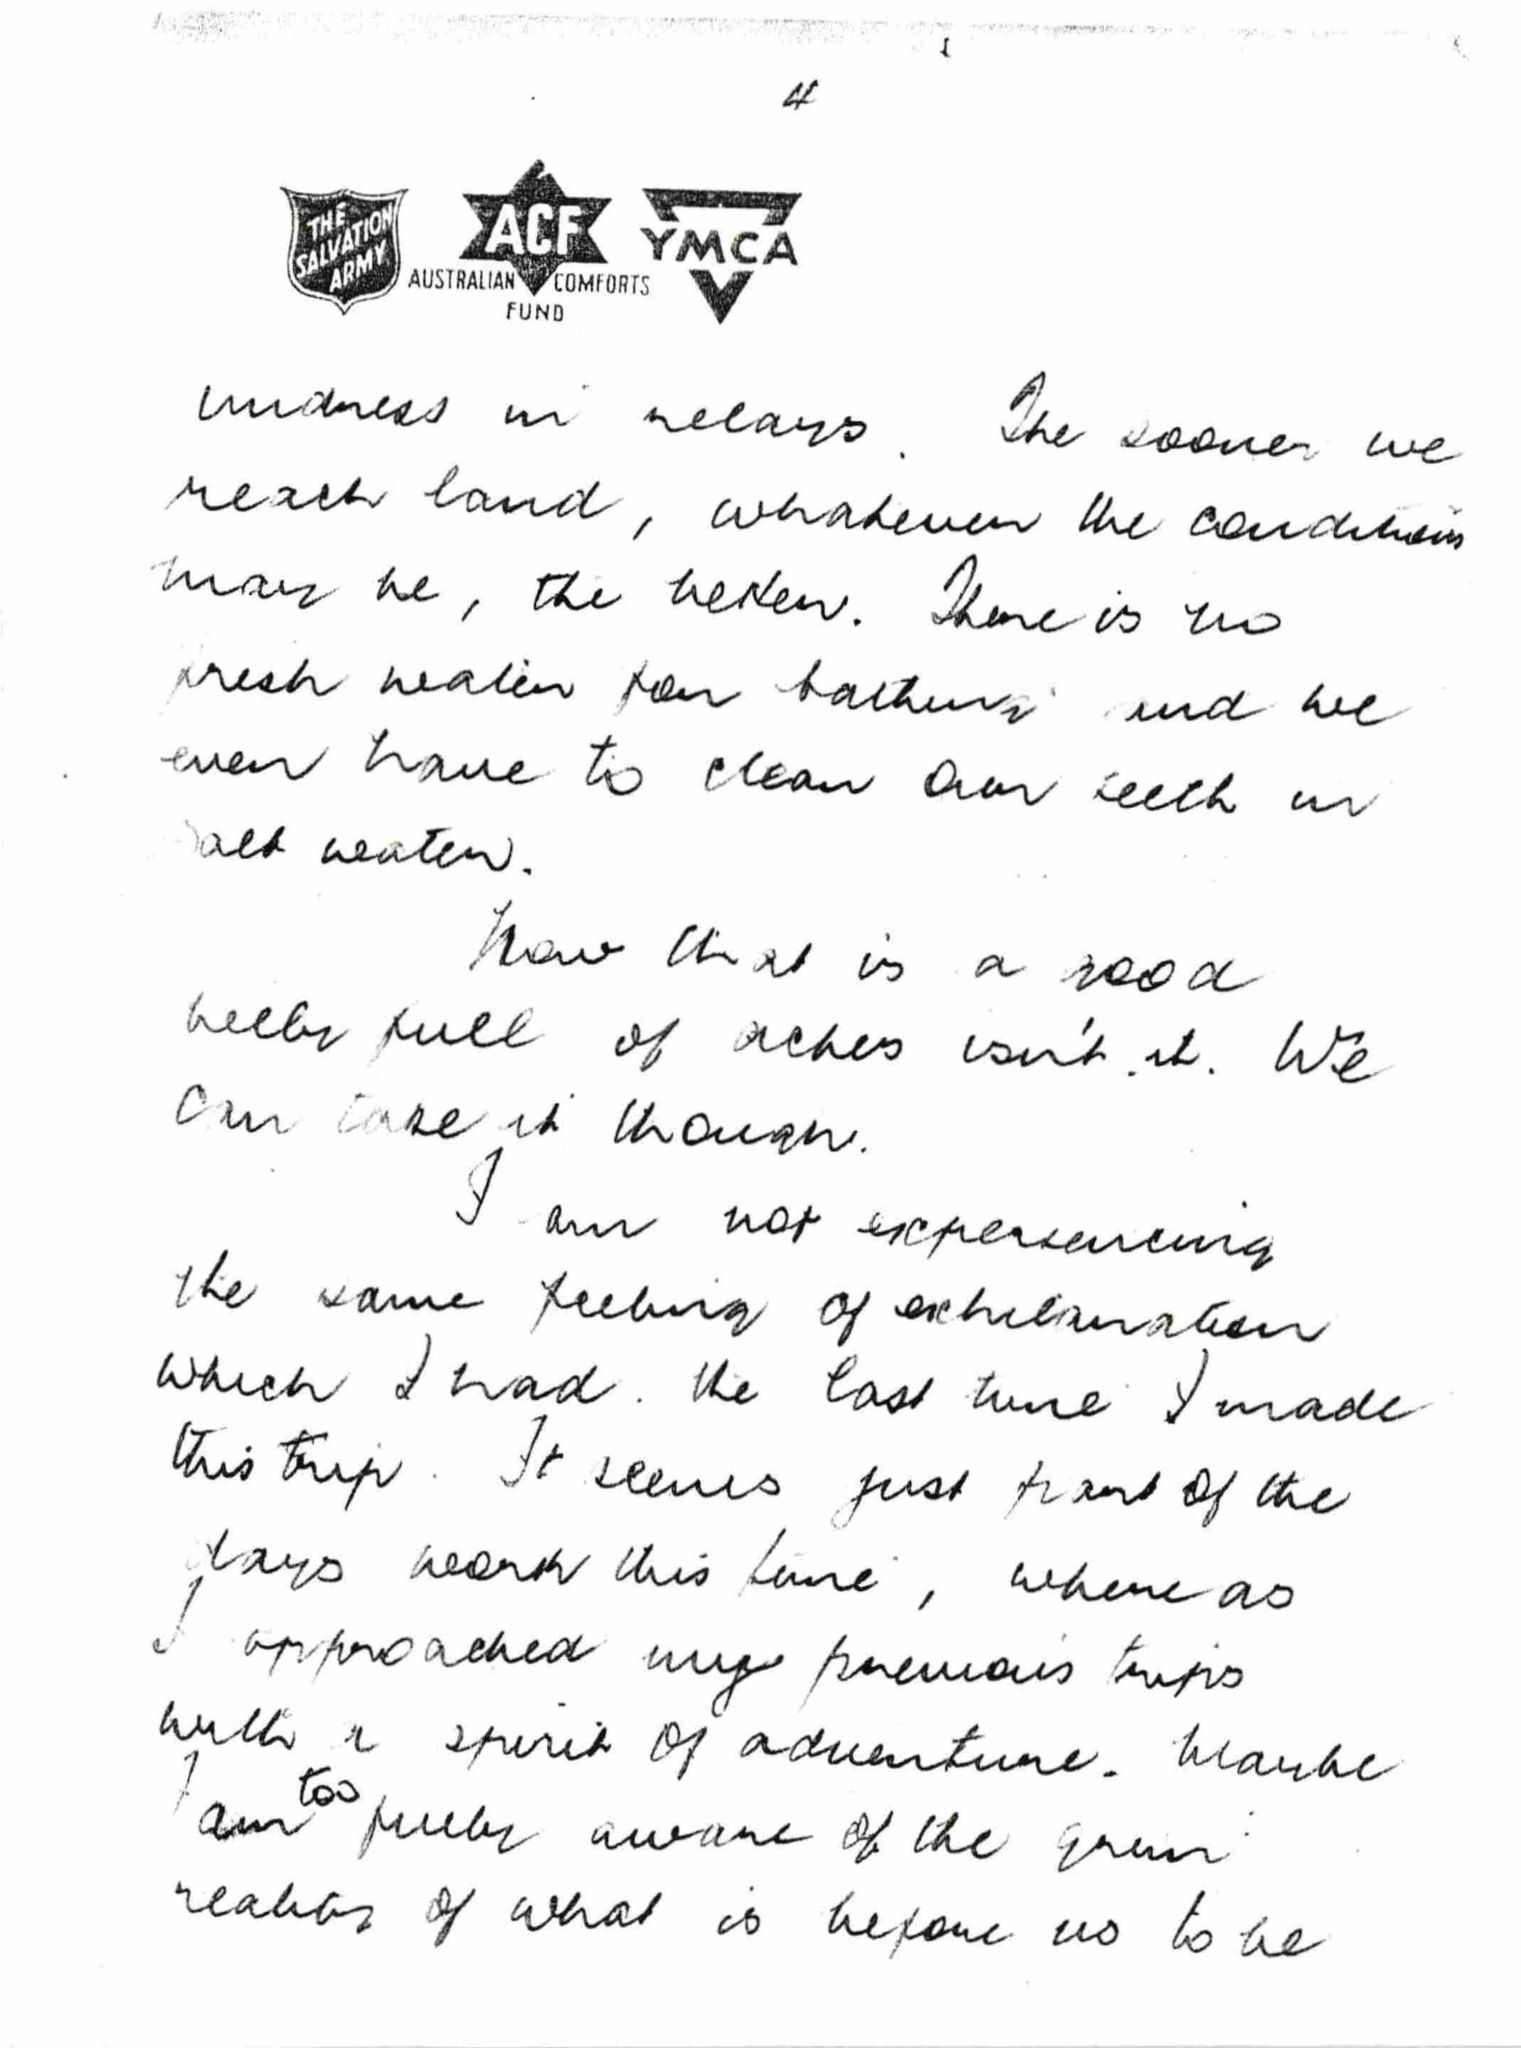 4
THE SALVATION ARMY
ACF
AUSTRALIAN COMFORTS FUND
YMCA
in relays. The sooner we
reach land, whatever the conditions
may be, the better. There is no
fresh water for bathing and we
even have to clean our teeth in
salt water.
Now that is a good
belly full of aches isn't it. We
can take it though.
I am not experiencing
the same feeling of exhilaration
which I had the last time I made
this trip. It seems just part of the
days work this time, where as
I approached my previous trips
with a spirit of adventure. Maybe
I am too fully aware of the grim
reality of what is before us to be